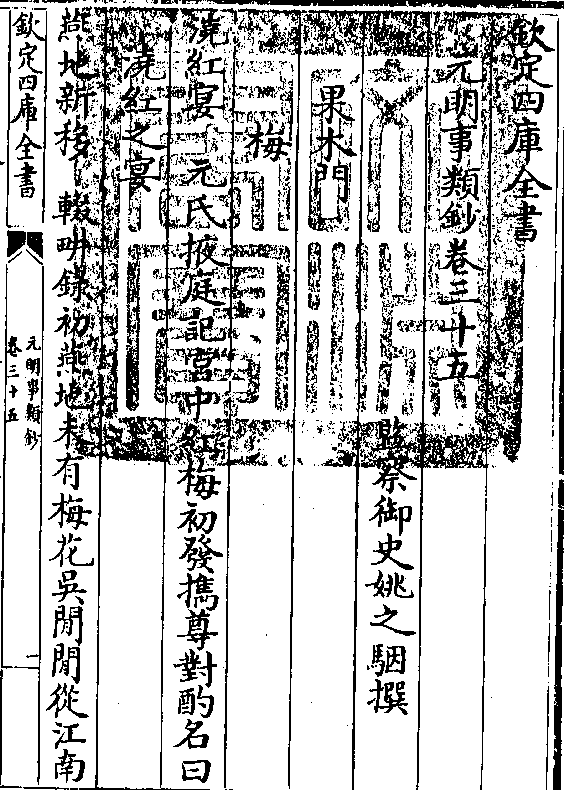 欽定四庫全書
元明事類鈔卷三十五
監察御史姚之駰撰
果木門
梅
澆紅宴 元氏掖庭記宮中紅梅初發攜尊對酌名曰
澆紅之宴
燕地新移 輟畊錄初燕地未有梅花吳閒閒從江南
欽定四庫全書
元明事類鈔
卷三十五
一